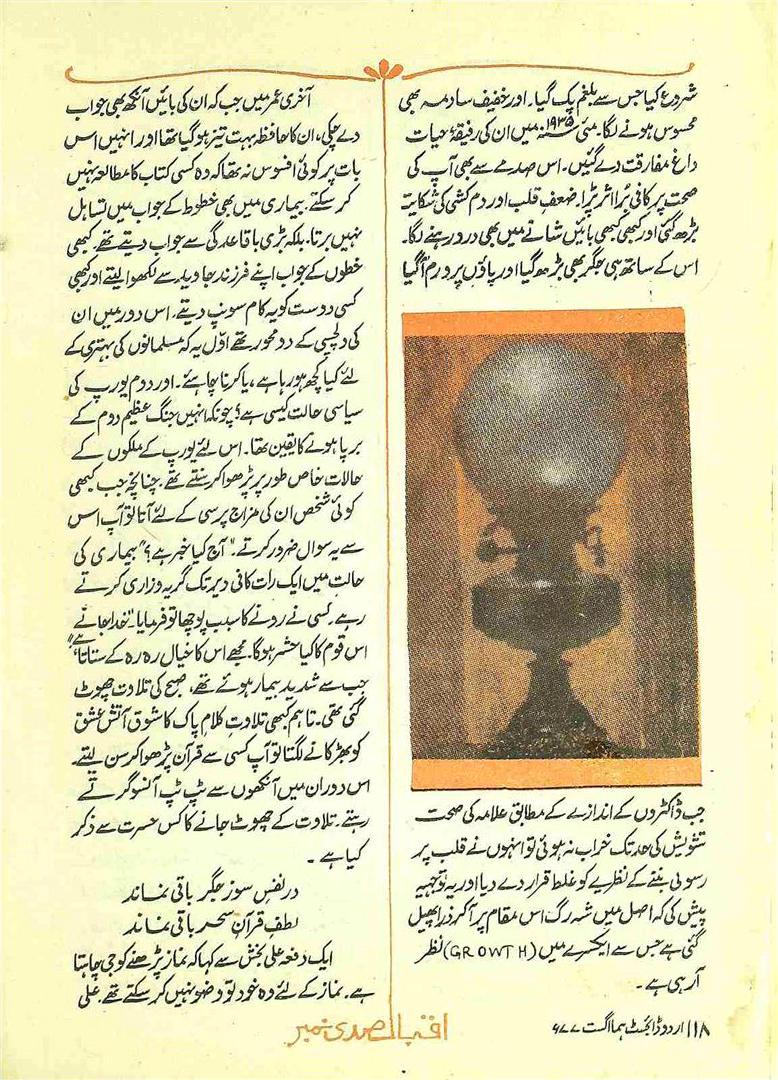 شروع کیا جس سے بلغم پک گیا۔ اور خفیف سا دمہ بھی
محسوس ہونے لگا۔ مئی ۱۹۳۵ء میں ان کی رفیقۂ حیات
داغ مفارقت دے گئیں۔ اس صدمے سے بھی آپ کی
صحت پر کافی بُرا اثر پڑا۔ ضعفِ قلب اور دم کشی کی شکایت
بڑھ گئی اور کبھی کبھی بائیں شانے میں بھی درد رہنے لگا۔
اس کے ساتھ ہی جگر بھی بڑھ گیا اور پاؤں پر ورم آ گیا
جب ڈاکٹروں کے اندازے کے مطابق علامہ کی صحت
تشویش کی حد تک خراب نہ ہوئی تو انہوں نے قلب پر
رسولی بننے کے نظریے کو غلط قرار دے دیا اور یہ توجیہہ
پیش کی کہ اصل میں شہ رگ اس مقام پر آ کر ذرا پھیل
گئی ہے جس سے ایکسرے میں (GROWTH) نظر
آ رہی ہے۔
آخری عمر میں جب کہ ان کی بائیں آنکھ بھی جواب
دے چکی، ان کا حافظہ بہت تیز ہو گیا تھا اور انہیں اس
بات پر کوئی افسوس نہ تھا کہ وہ کسی کتاب کا مطالعہ نہیں
کر سکتے۔ بیماری میں بھی خطوط کے جواب میں تساہل
نہیں برتا۔ بلکہ بڑی باقاعدگی سے جواب دیتے تھے۔ کبھی
خطوں کے جواب اپنے فرزند جاوید سے لکھوا لیتے اور کبھی
کسی دوست کو یہ کام سونپ دیتے۔ اس دور میں ان
کی دلچسپی کے دو محور تھے اوّل یہ کہ مسلمانوں کی بہتری کے
لئے کیا کچھ ہو رہا ہے، یا کرنا چاہئے۔ اور دوم یورپ کی
سیاسی حالت کیسی ہے؟ چونکہ انہیں جنگ عظیم دوم کے
برپا ہونے کا یقین تھا۔ اس لئے یورپ کے ملکوں کے
حالات خاص طور پر پڑھوا کر سنتے تھے۔ چنانچہ جب کبھی
کوئی شخص ان کی مزاج پرسی کے لئے آتا تو آپ اس
سے یہ سوال ضرور کرتے۔ "آج کیا خبر ہے؟" بیماری کی
حالت میں ایک رات کافی دیر تک گریہ و زاری کرتے
رہے۔ کسی نے رونے کا سبب پوچھا تو فرمایا۔ "خدا جانے
اس قوم کا کیا حشر ہوگا۔ مجھے اس کا خیال رہ رہ کے ستاتا ہے"
جب سے شدید بیمار ہوئے تھے، صبح کی تلاوت چھوٹ
گئی تھی۔ تاہم کبھی تلاوتِ کلامِ پاک کا شوق آتشِ عشق
کو بھڑکانے لگتا تو آپ کسی سے قرآن پڑھوا کر سن لیتے۔
اس دوران میں آنکھوں سے ٹپ ٹپ آنسو گرتے
رہتے۔ تلاوت کے چھوٹ جانے کا کس حسرت سے ذکر
کیا ہے۔
در نفس سوزِ جگر باقی نماند
لطفِ قرآنِ سحر باقی نماند
ایک دفعہ علی بخش سے کہا کہ نماز پڑھنے کو جی چاہتا
ہے۔ نماز کے لئے وہ خود تو وضو نہیں کر سکتے تھے۔ علی
۱۱۸ اردو ڈائجسٹ ہما اگست ۷۷ء
اقبال صدی نمبر